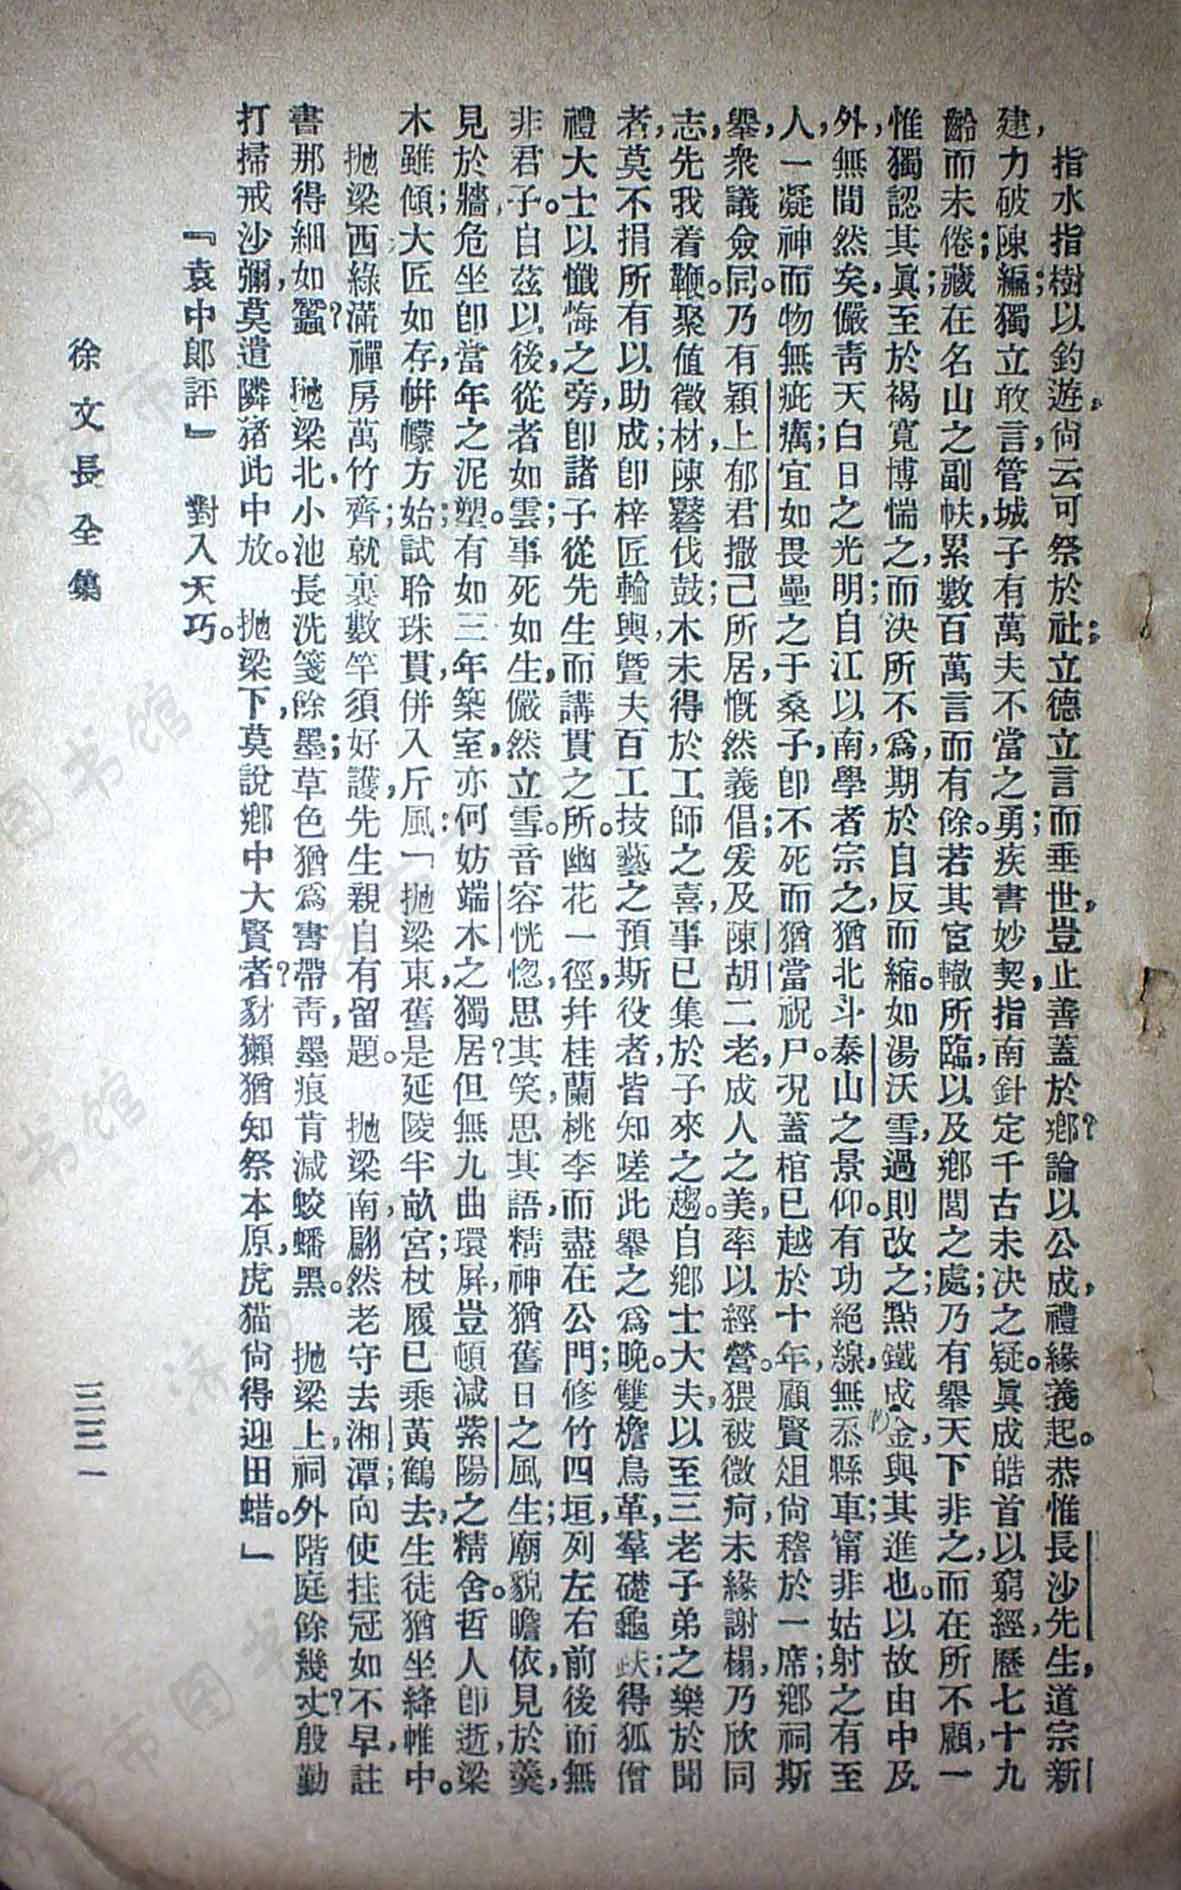 指水指樹，以釣遊尙云可祭於社；立德立言而垂世，豈止善蓋於鄉？論以公成，禮緣義起。恭惟長沙先生，道宗新
建，力破陳編；獨立敢言，管城子有萬夫不當之勇；疾書妙契，指南針定千古未决之疑。眞成皓首以窮經，歷七十九
齡而未倦；藏在名山之副帙，累數百萬言而有餘。若其宦轍所臨，以及鄉閭之處；乃有舉天下非之，而在所不顧，一
惟獨認其眞；至於褐寬博惴之，而決所不爲，期於自反而縮。如湯沃雪，過則改之；點鐵成金，與其進也。以故由中及
外，無間然矣，儼靑天白日之光明；自江以南，學者宗之，猶北斗泰山之景仰。有功絕線，無忝縣車；甯非姑射之有至
人，一凝神而物無疵癘；宜如畏壘之于桑子，卽不死而猶當祝尸。况蓋棺已越於十年，顧賢俎尙稽於一席；鄉祠斯
舉，衆議僉同。乃有穎上郁君，撒己所居，慨然義倡；爰及陳胡二老，成人之美，率以經營。猥被微疴，未緣謝榻，乃欣同
志，先我着鞭。聚值徵材，陳鼛伐鼓；木未得於工師之喜，事已集於子來之趨。自鄉士大夫，以至三老子弟之樂於聞
者，莫不捐所有以助成；卽梓匠輪輿，曁夫百工技藝之預斯役者，皆知嗟此舉之爲晚。雙檐鳥革，羣礎龜趺；得狐僧
禮大士以懺悔之旁，卽諸子從先生而講貫之所。幽花一徑，幷桂蘭桃李而盡在公門；修竹四垣，列左右前後而無
非君子。自茲以後，從者如雲；事死如生，儼然立雪。音容恍惚，思其笑，思其語，精神猶舊日之風生；廟貌瞻依，見於羹，
見於牆，危坐卽當年之泥塑。有如三年築室，亦何妨端木之獨居？但無九曲環屏，豈頓減紫陽之精舍。哲人卽逝，梁
木雖傾；大匠如存，帡幪方始；試聆珠貫，併入斤風：「拋梁東，舊是延陵半畝宮；杖履已乘黃鶴去，生徒猶坐絳帷中。
拋梁西，綠滿禪房萬竹齊；就裏數竿須好護，先生親自有留題。　拋梁南，翩然老守去湘潭；向使挂冠如不早，註
書那得細如蠶？　拋梁北，小池長洗箋餘墨；草色猶爲書帶靑，墨痕肯減蛟蟠黑。　拋梁上，祠外階庭餘幾丈？殷勤
打掃戒沙彌，莫遣隣猪此中放。　拋梁下，莫說鄉中大賢者？豺獺猶知祭本原，虎猫尙得迎田蜡。」
『袁中郞評』　對入天巧。
徐文長全集　三三一